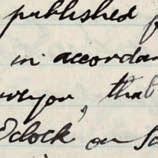 published f
in accordan
rveyor, that
O'clock, on S